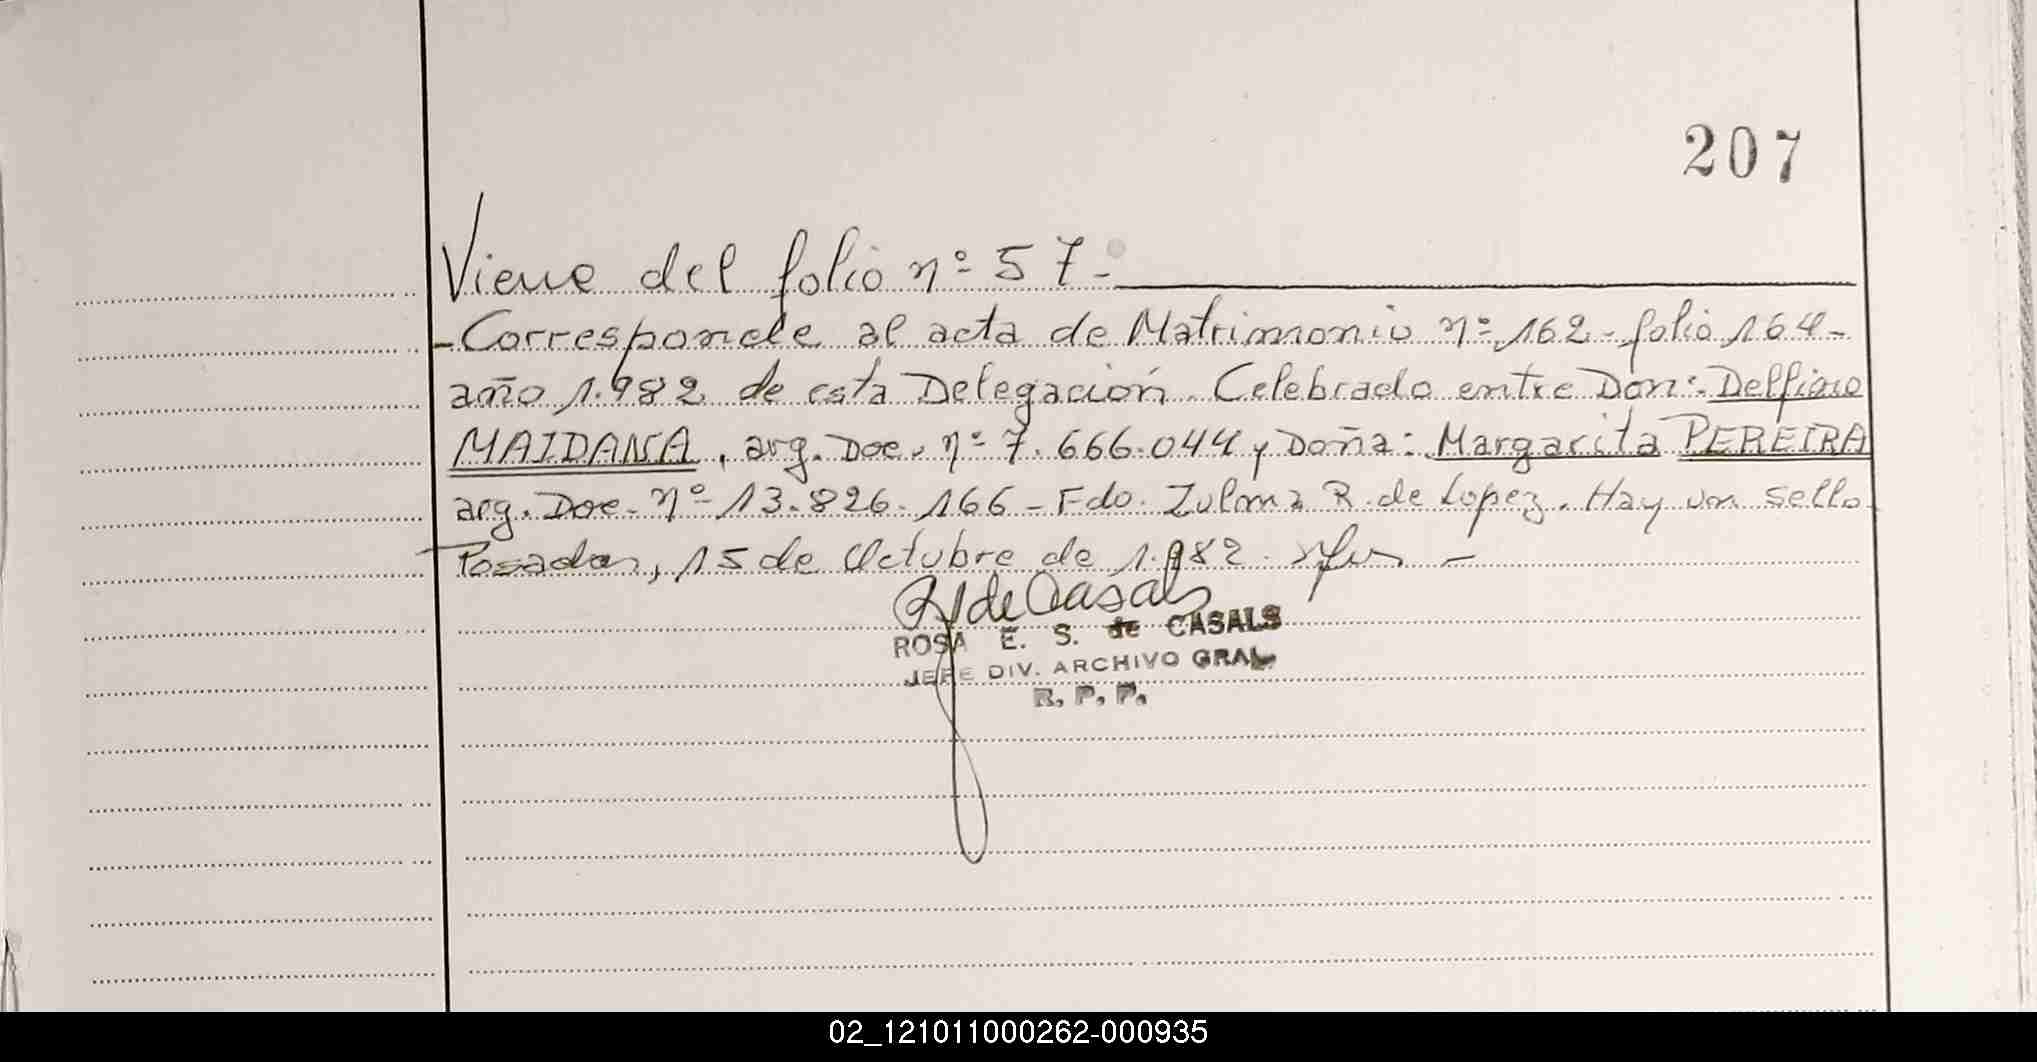 207
Viene del folio nº 57-
-Corresponde al acta de Matrimonio nº 162-folio 164-
año 1.982 de esta Delegación. Celebrado entre Don: Delfino
MAIDANA, arg. Doc. nº 7.666.044 y Doña: Margarita PEREIRA
arg. Doc. nº 13.826.166 - Fdo. Zulma R. de Lopez. Hay un sello.
Posadas, 15 de Octubre de 1.982.
de Casals
ROSA E. S. de CASALS
JEFE DIV. ARCHIVO GRAL
R. P. P.
02_121011000262-000935